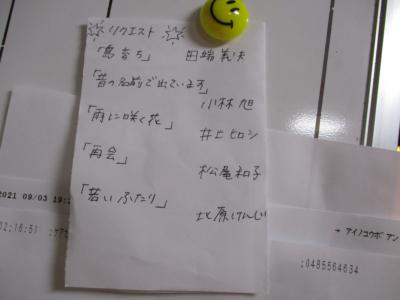 ☆リクエスト☆
「島育ち」 田端義夫
「昔の名前で出ています」
小林旭
「雨に咲く花」
井上ヒロシ
「再会」
松尾和子
「若いふたり」
北原けんじ
2021 09/03 19:
02:16:51
→ アイノコウボ アン
:0485564634